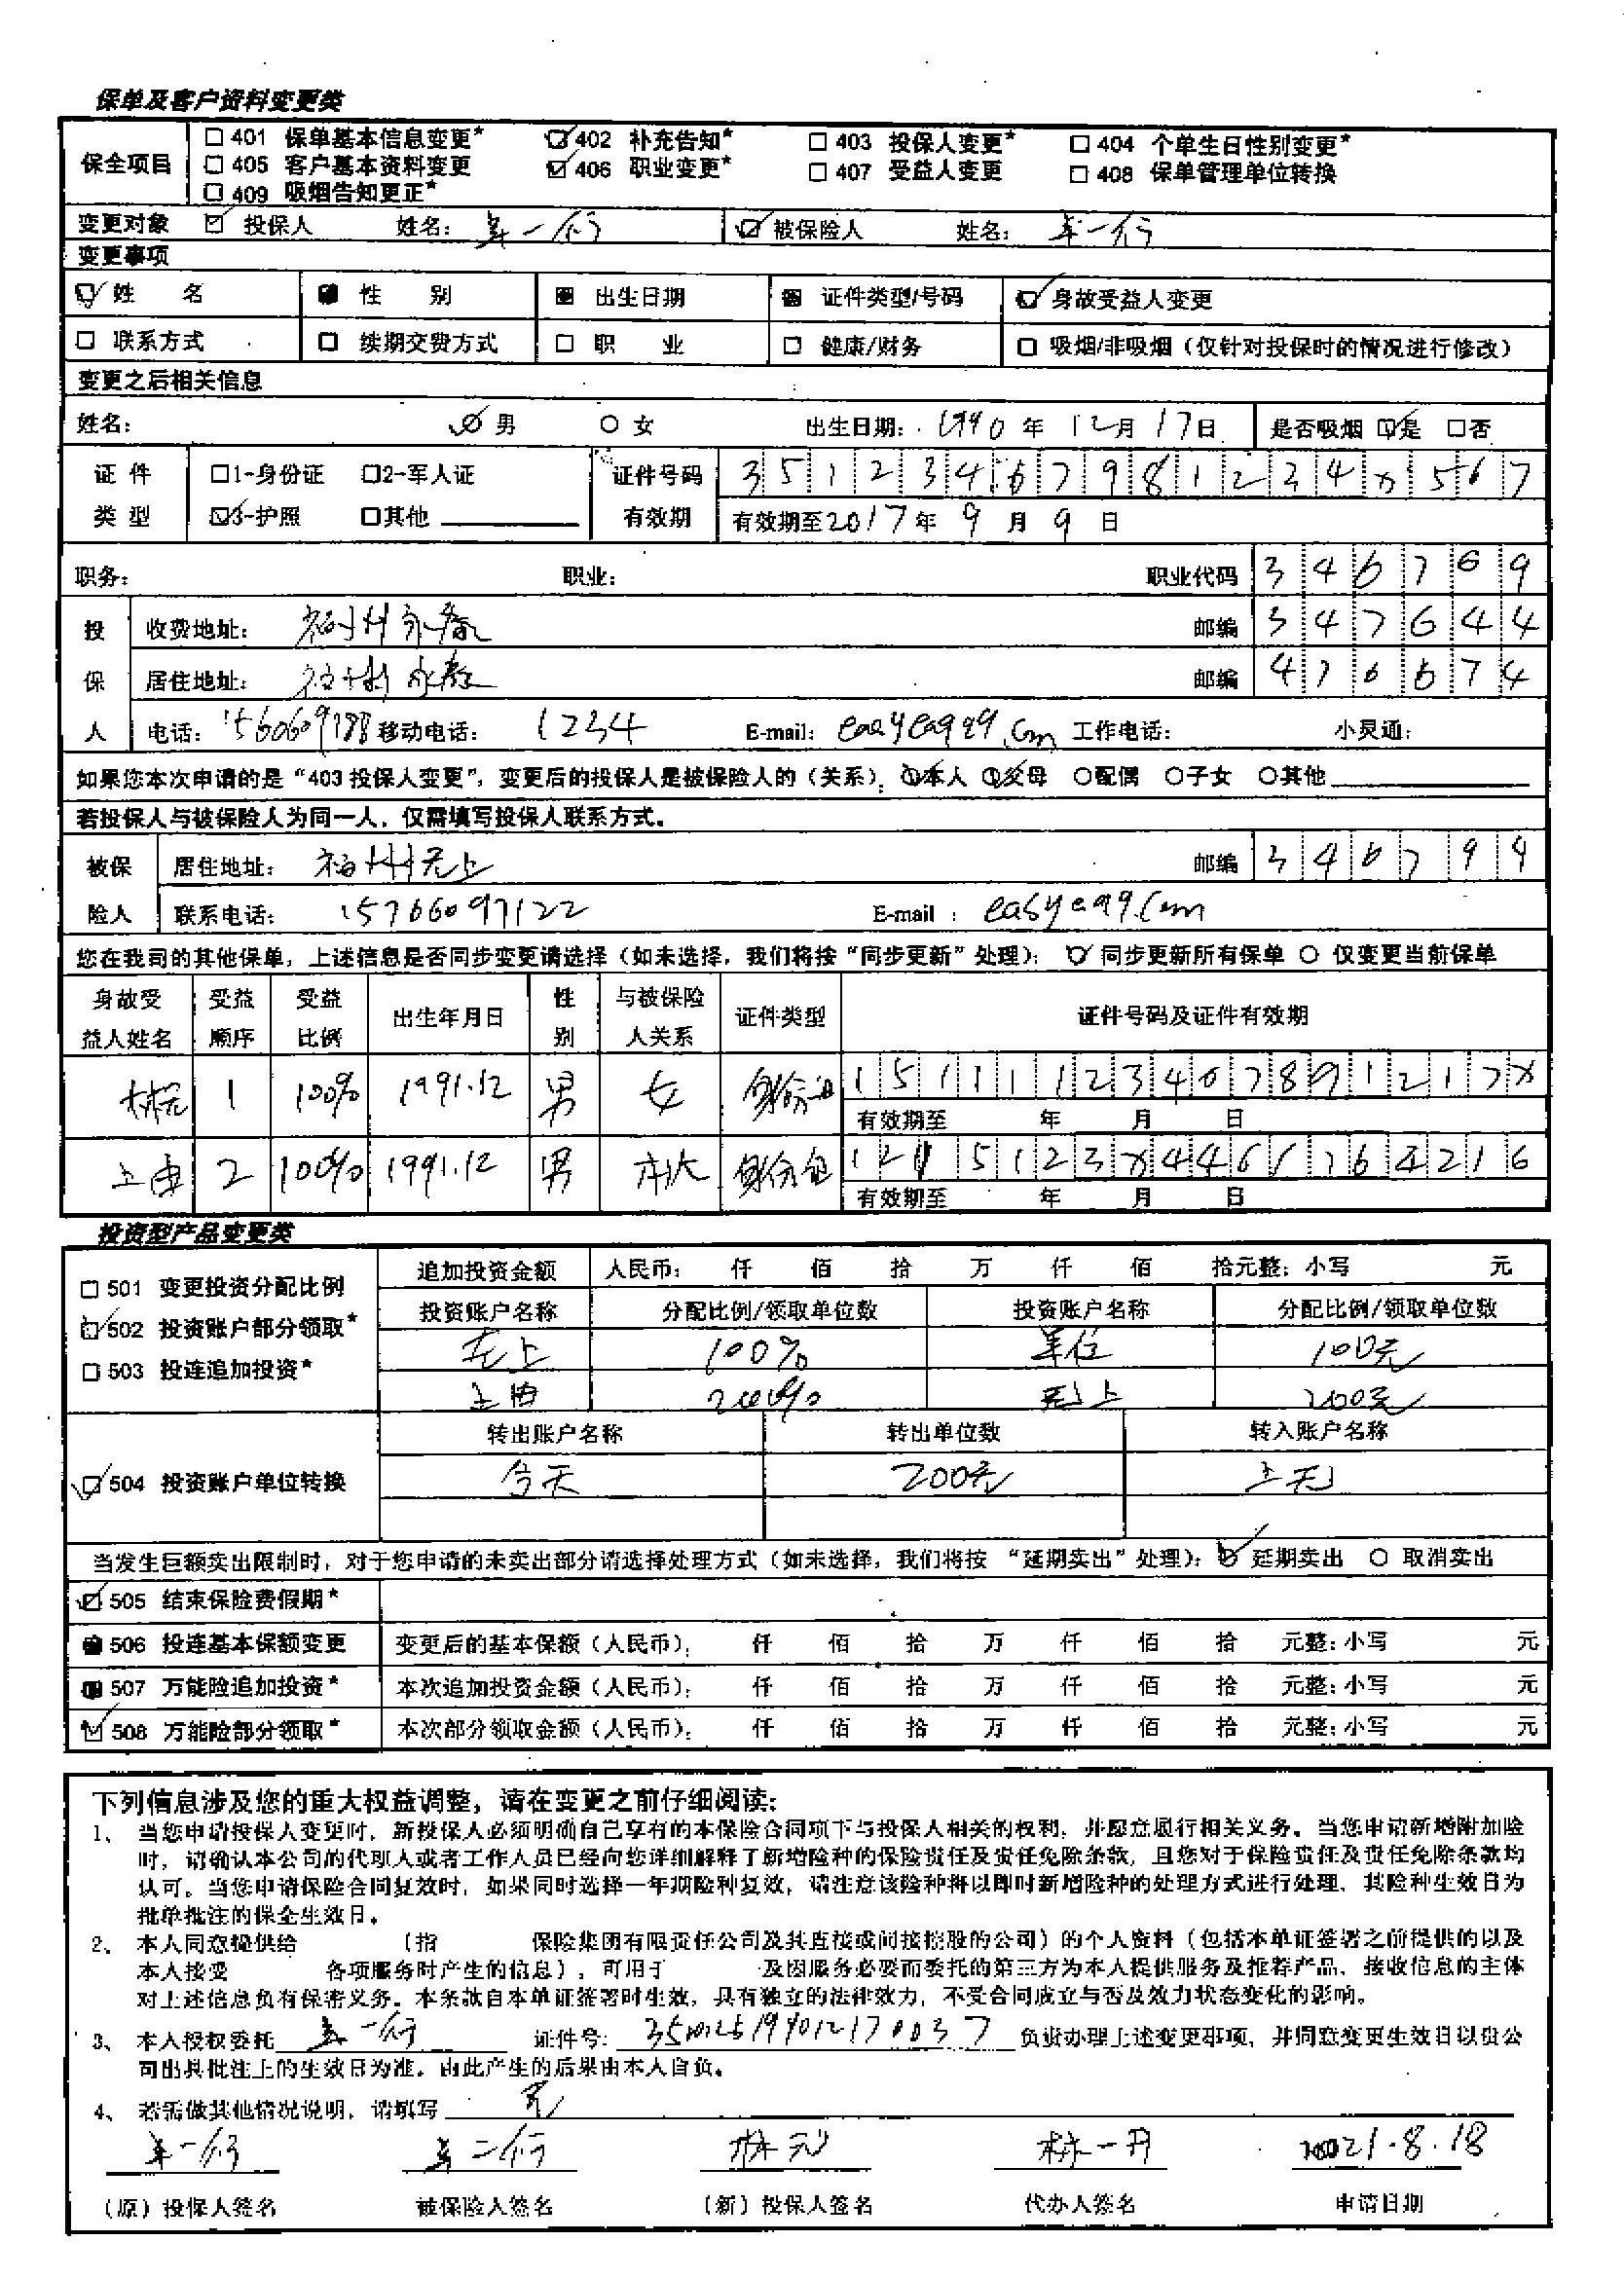 保单及客户资料变更类
保全项目
□ 401 保单基本信息变更* ☑ 402 补充告知* □ 403 投保人变更* □ 404 个单生日性别变更*
□ 405 客户基本资料变更 ☑ 406 职业变更* □ 407 受益人变更 □ 408 保单管理单位转换
□ 409 吸烟告知更正*
变更对象 ☑ 投保人 姓名: 一行 ☑ 被保险人 姓名: 一行
变更事项
☑ 姓 名 ■ 性 别 ■ 出生日期 ■ 证件类型/号码 ☑ 身故受益人变更
□ 联系方式 □ 续期交费方式 □ 职 业 □ 健康/财务 □ 吸烟/非吸烟（仅针对投保时的情况进行修改）
变更之后相关信息
姓名: 男 ○ 女 出生日期: 1990 年 12月 17日 是否吸烟 ☑是 □否
证件类型 □1-身份证 □2-军人证 证件号码
☑3-护照 □其他 有效期 有效期至2017年 9 月 9 日
职务: 职业: 职业代码 346769
投保人 收费地址: 永春 邮编 347644
居住地址: 永春 邮编 476674
电话: 移动电话: 1234 E-mail: 工作电话: 小灵通:
如果您本次申请的是“403 投保人变更”，变更后的投保人是被保险人的（关系）: 本人 父母 ○配偶 ○子女 ○其他
若投保人与被保险人为同一人，仅需填写投保人联系方式。
被保险人 居住地址: 邮编 346799
联系电话: 15766097122 E-mail : easyeqq.com
您在我司的其他保单，上述信息是否同步变更请选择（如未选择，我们将按“同步更新”处理）: 同步更新所有保单 ○ 仅变更当前保单
身故受益人姓名 受益顺序 受益比例 出生年月日 性别 与被保险人关系 证件类型 证件号码及证件有效期
林元 1 100% 1991.12 男 女 身份证
有效期至 年 月 日
2 100% 1991.12 男 身份证
有效期至 年 月 日
投资型产品变更类
□ 501 变更投资分配比例 追加投资金额 人民币: 仟 佰 拾 万 仟 佰 拾元整: 小写 元
☑ 502 投资账户部分领取* 投资账户名称 分配比例/领取单位数 投资账户名称 分配比例/领取单位数
□ 503 投连追加投资* 无上 100% 单位 100元
200% 无上 200元
☑ 504 投资账户单位转换 转出账户名称 转出单位数 转入账户名称
今天 200元 上天
当发生巨额卖出限制时，对于您申请的未卖出部分请选择处理方式（如未选择，我们将按 “延期卖出” 处理）: 延期卖出 ○ 取消卖出
☑ 505 结束保险费假期*
■ 506 投连基本保额变更 变更后的基本保额（人民币）: 仟 佰 拾 万 仟 佰 拾 元整: 小写 元
■ 507 万能险追加投资* 本次追加投资金额（人民币）: 仟 佰 拾 万 仟 佰 拾 元整: 小写 元
☑ 508 万能险部分领取* 本次部分领取金额（人民币）: 仟 佰 拾 万 仟 佰 拾 元整: 小写 元
下列信息涉及您的重大权益调整，请在变更之前仔细阅读:
1、 当您申请投保人变更时，新投保人必须明确自己享有的本保险合同项下与投保人相关的权利，并愿意履行相关义务。当您申请新增附加险
时，请确认本公司的代理人或者工作人员已经向您详细解释了新增险种的保险责任及责任免除条款，且您对于保险责任及责任免除条款均
认可。当您申请保险合同复效时，如果同时选择一年期险种复效，请注意该险种将以即时新增险种的处理方式进行处理，其险种生效日为
批单批注的保全生效日。
2、 本人同意提供给 （指 保险集团有限责任公司及其直接或间接控股的公司）的个人资料（包括本单证签署之前提供的以及
本人接受 各项服务时产生的信息），可用于 及因服务必要而委托的第三方为本人提供服务及推荐产品，接收信息的主体
对上述信息负有保密义务。本条款自本单证签署时生效，具有独立的法律效力，不受合同成立与否及效力状态变化的影响。
3、 本人授权委托 一行 证件号: 负责办理上述变更事项，并同意变更生效日以贵公
司出具批注上的生效日为准。由此产生的后果由本人自负。
4、 若需做其他情况说明，请填写 无
一行 二行 林元 林一丹 2021.8.18
（原）投保人签名 被保险人签名 （新）投保人签名 代办人签名 申请日期